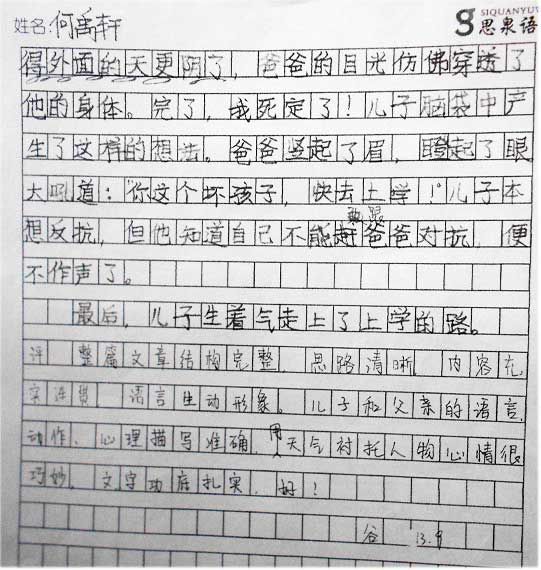 姓名:何禹轩
SIQUANYU
思泉语
得外面的天更阴了，爸爸的目光仿佛穿透了
他的身体。完了，我死定了！儿子脑袋中产
生了这样的想法。爸爸竖起了眉，瞪起了眼
大吼道：“你这个坏孩子，快去上学！”儿子本
敢跟
想反抗，但他知道自己不能赶爸爸对抗，便
不作声了。
最后，儿子生着气走上了上学的路。
评 整篇文章结构完整，思路清晰 内容充
实连贯 语言生动形象。儿子和父亲的语言、
动作、心理描写准确，用天气衬托人物心情很
巧妙。文字功底扎实，好！
谷 13.9